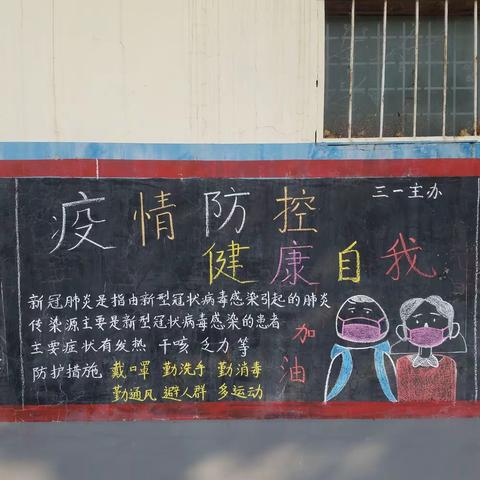 三一主办
疫情防控
健康自我
新冠肺炎是指由新型冠状病毒感染引起的肺炎
传染源主要是新型冠状病毒感染的患者
主要症状有发热 干咳 乏力 等
防护措施 戴口罩 勤洗手 勤消毒
勤通风 避人群 多运动
加油